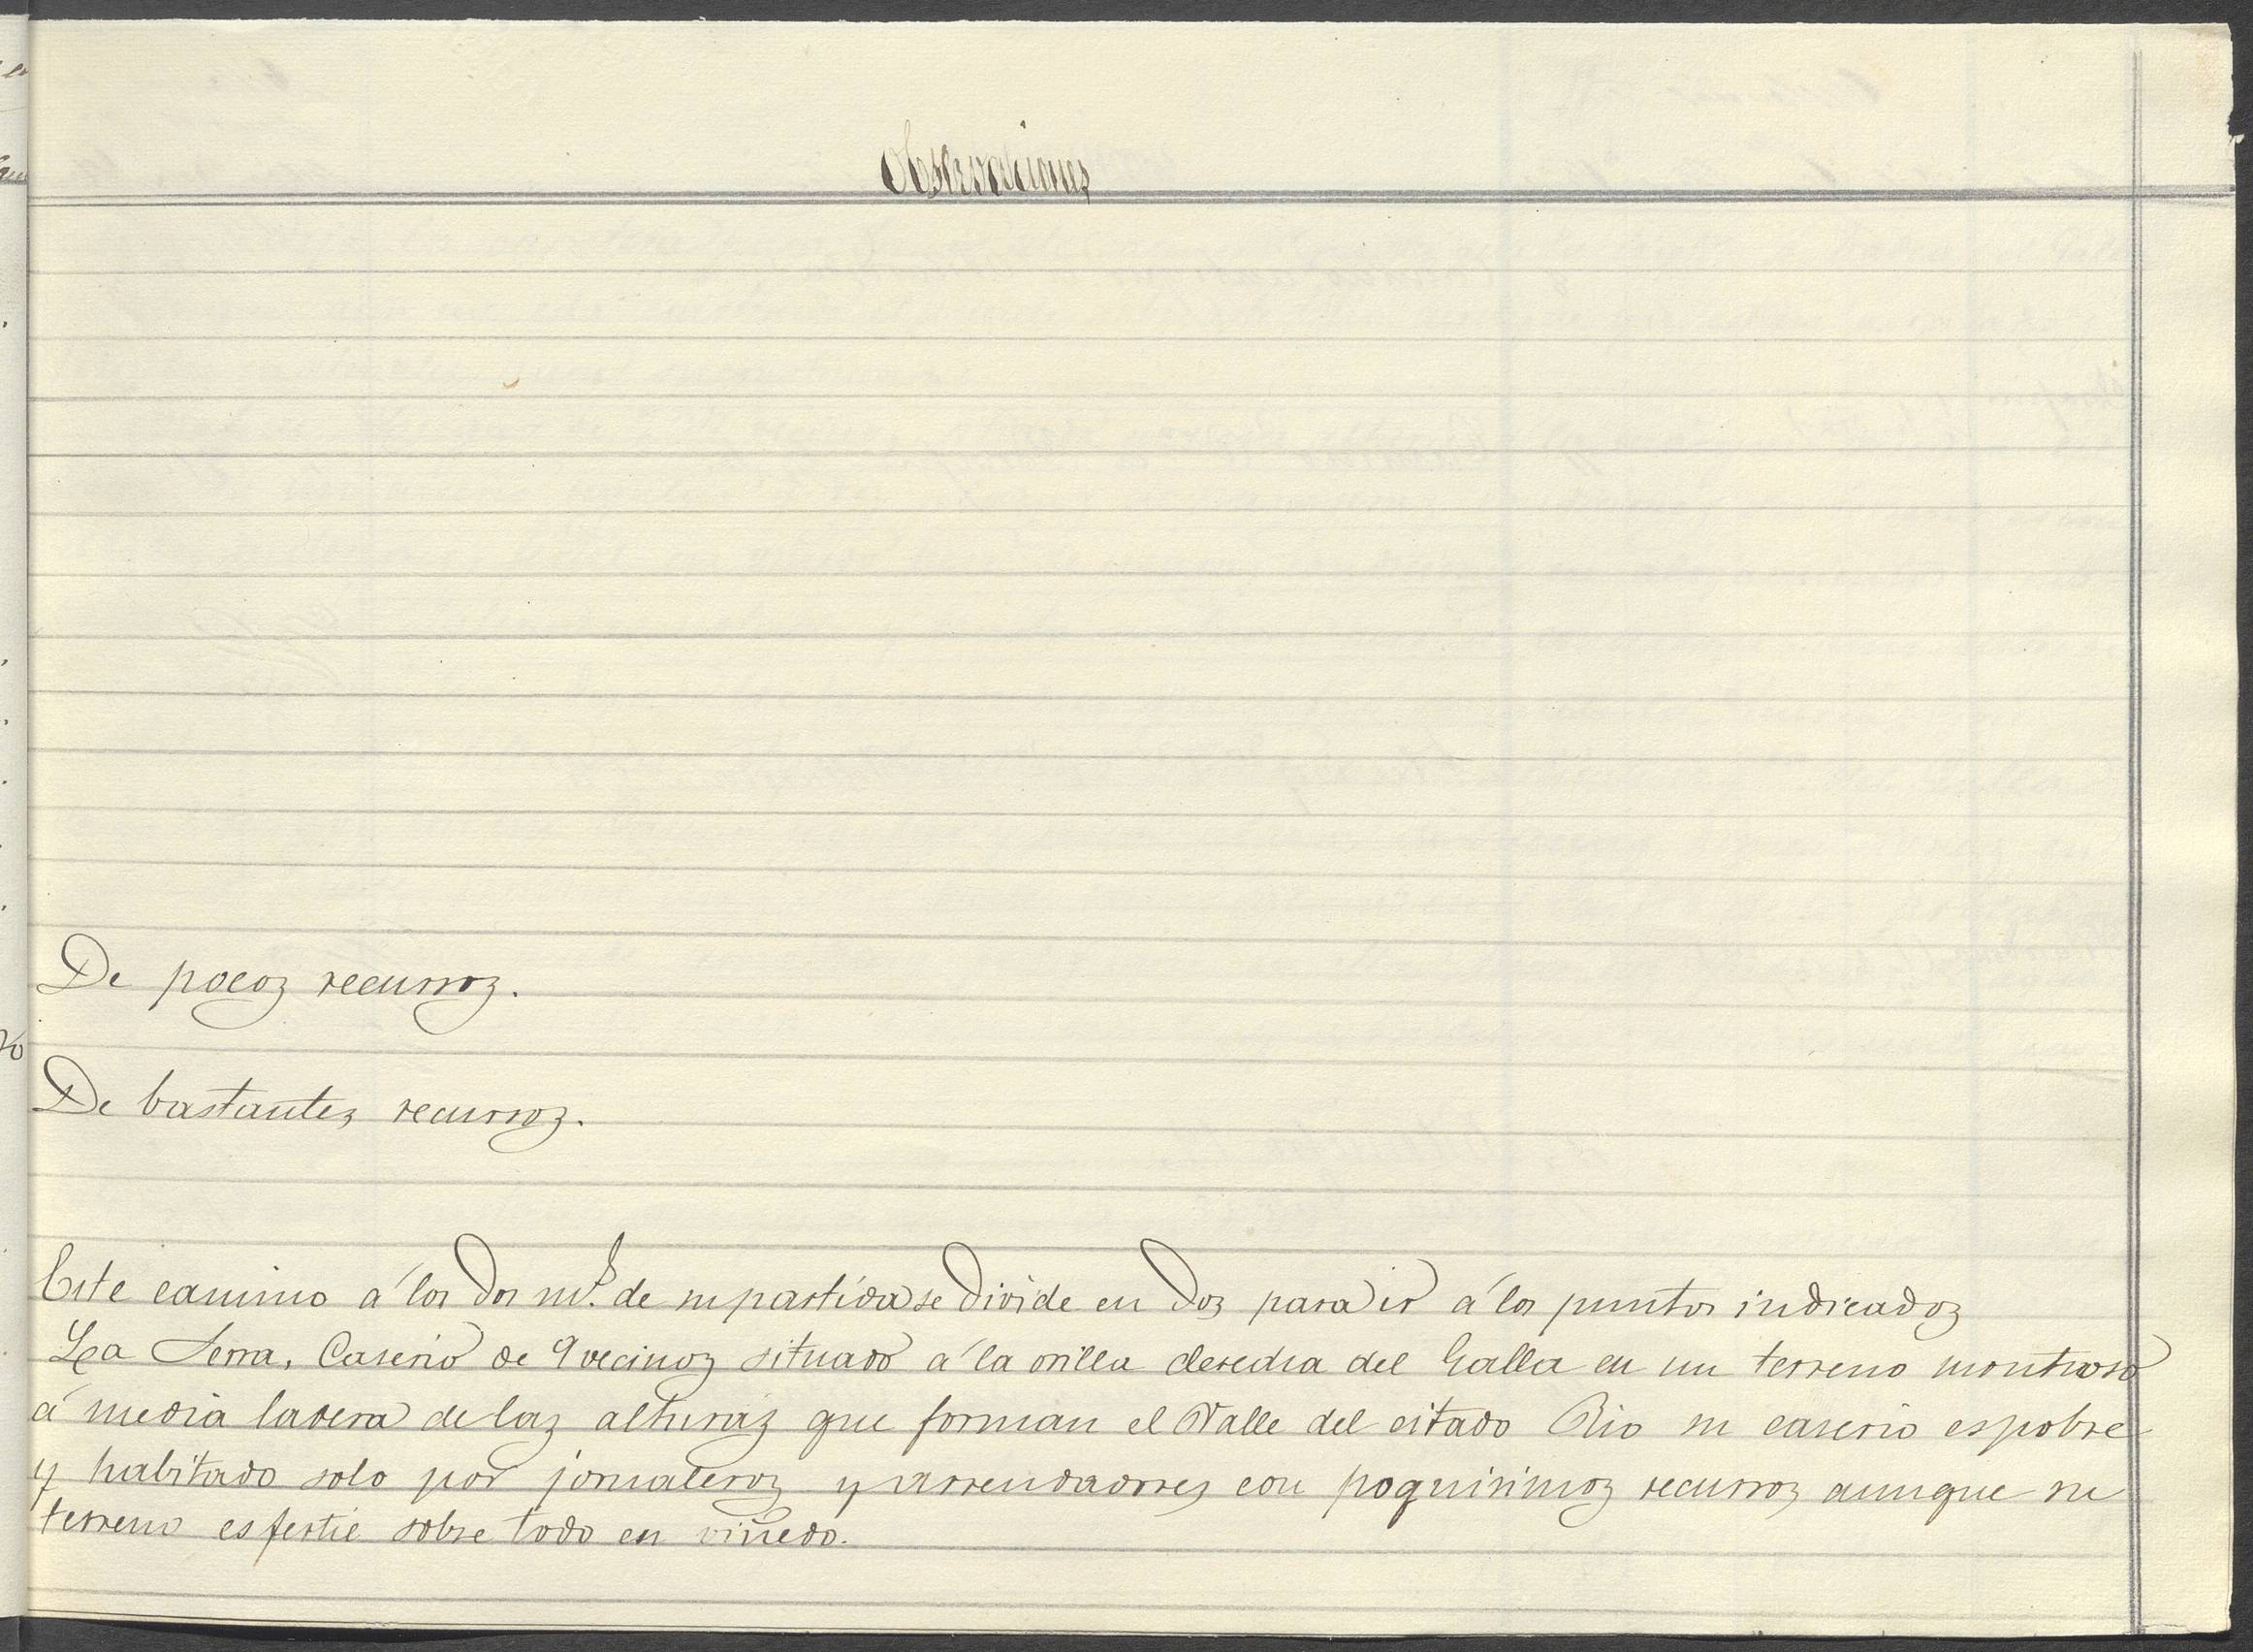 Observaciones
De pocos recursos.
De bastantes recursos.
Este camino á los dos de su partida se divide en dos para ir á los puntos indicados
La Serra, Caserio de 9 vecinos situado á la orilla derecha del Galla en un terreno montuoso
á media ladera de las alturas que forman el Valle del citado Rio su caserio es pobre
y habitado solo por jornaleros y arrendadores con poquisimos recursos aunque su
terreno es fertil sobre todo en viñedo.